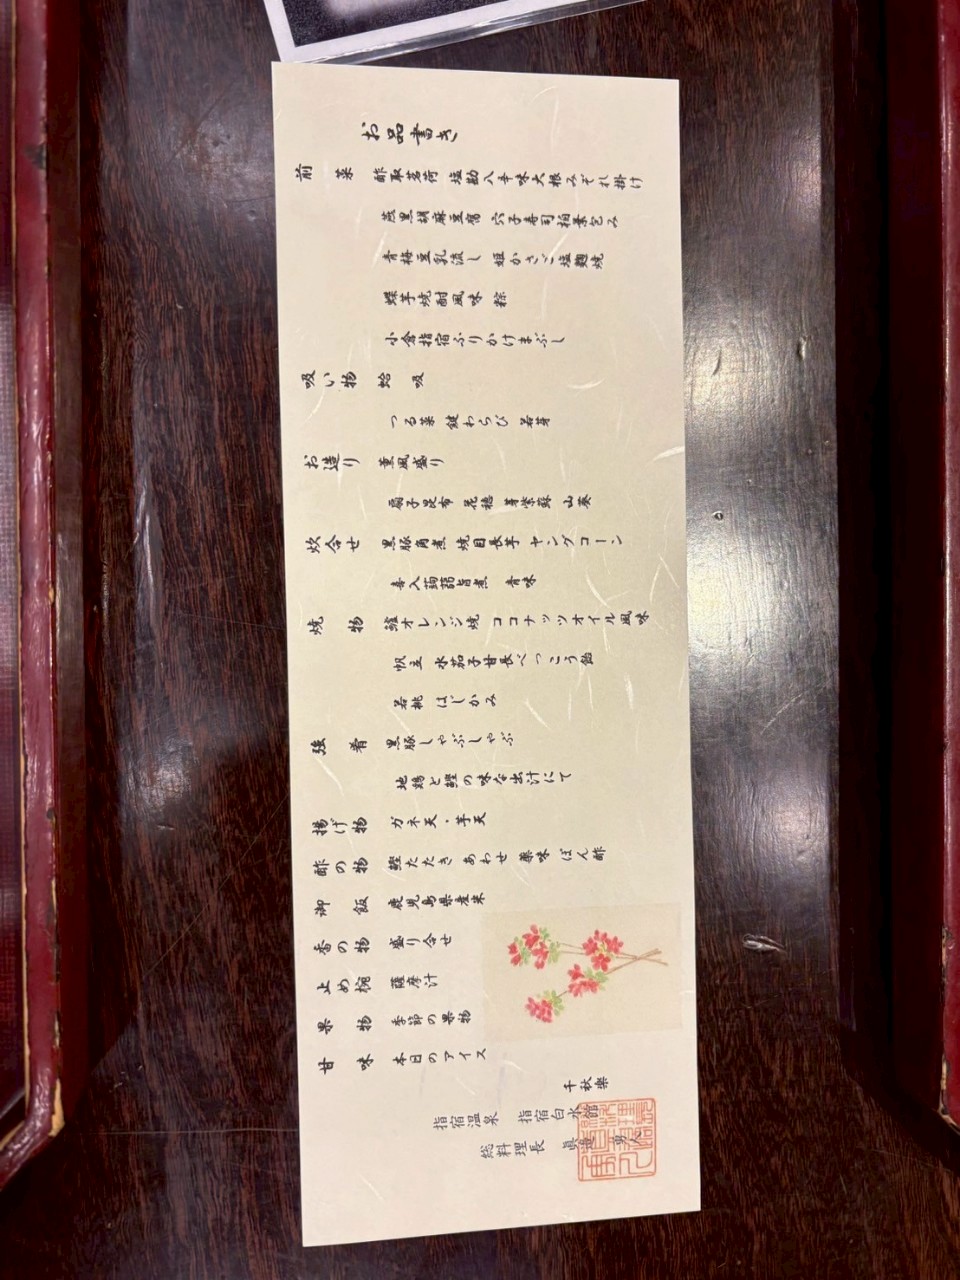 お品書き
前菜 酢取茗荷 塩勘八辛味大根みぞれ掛け
燕黒胡麻豆腐 穴子寿司柏葉包み
青梅豆乳流し 姫かさご塩麹焼
蝶芋焼酎風味 粽
小倉指宿ふりかけまぶし
吸い物 蛤吸
つる菜 鍵わらび 若芽
お造り 薫風盛り
扇子昆布 花穂 芽紫蘇 山葵
炊合せ 黒豚角煮 焼目長芋 ヤングコーン
喜入蒟蒻旨煮 青味
焼物 鱸オレンジ焼 ココナッツオイル風味
帆立 水茄子甘長べっこう飴
若桃 はじかみ
強肴 黒豚しゃぶしゃぶ
地鶏と鰹の味な出汁にて
揚げ物 ガネ天・芋天
酢の物 鰹たたき あわせ 薬味 ぽん酢
御飯 鹿児島県産米
香の物 盛り合せ
止め椀 薩摩汁
果物 季節の果物
甘味 本日のアイス
千秋楽
指宿温泉 指宿白水館
総料理長 眞造 勇人